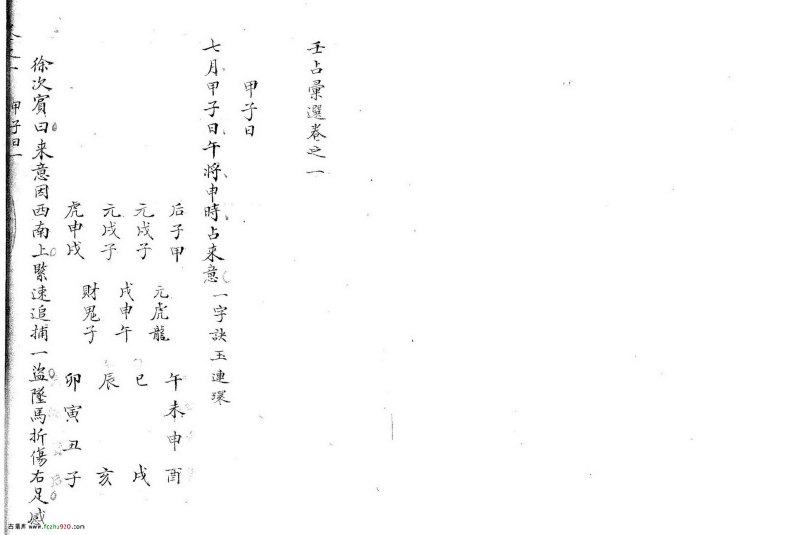 壬占彙選卷之一
甲子日
七月甲子日午將申時占来意 一字訣玉連環
后子甲
元戌子
元戌子
虎申戌
元虎龍
戌申午
財鬼子
午未申酉
巳 戌
辰 亥
卯寅丑子
徐次賓曰来意因西南上緊速追捕一盜墜馬折傷右足感
甲子日一
www.fczhu920.com